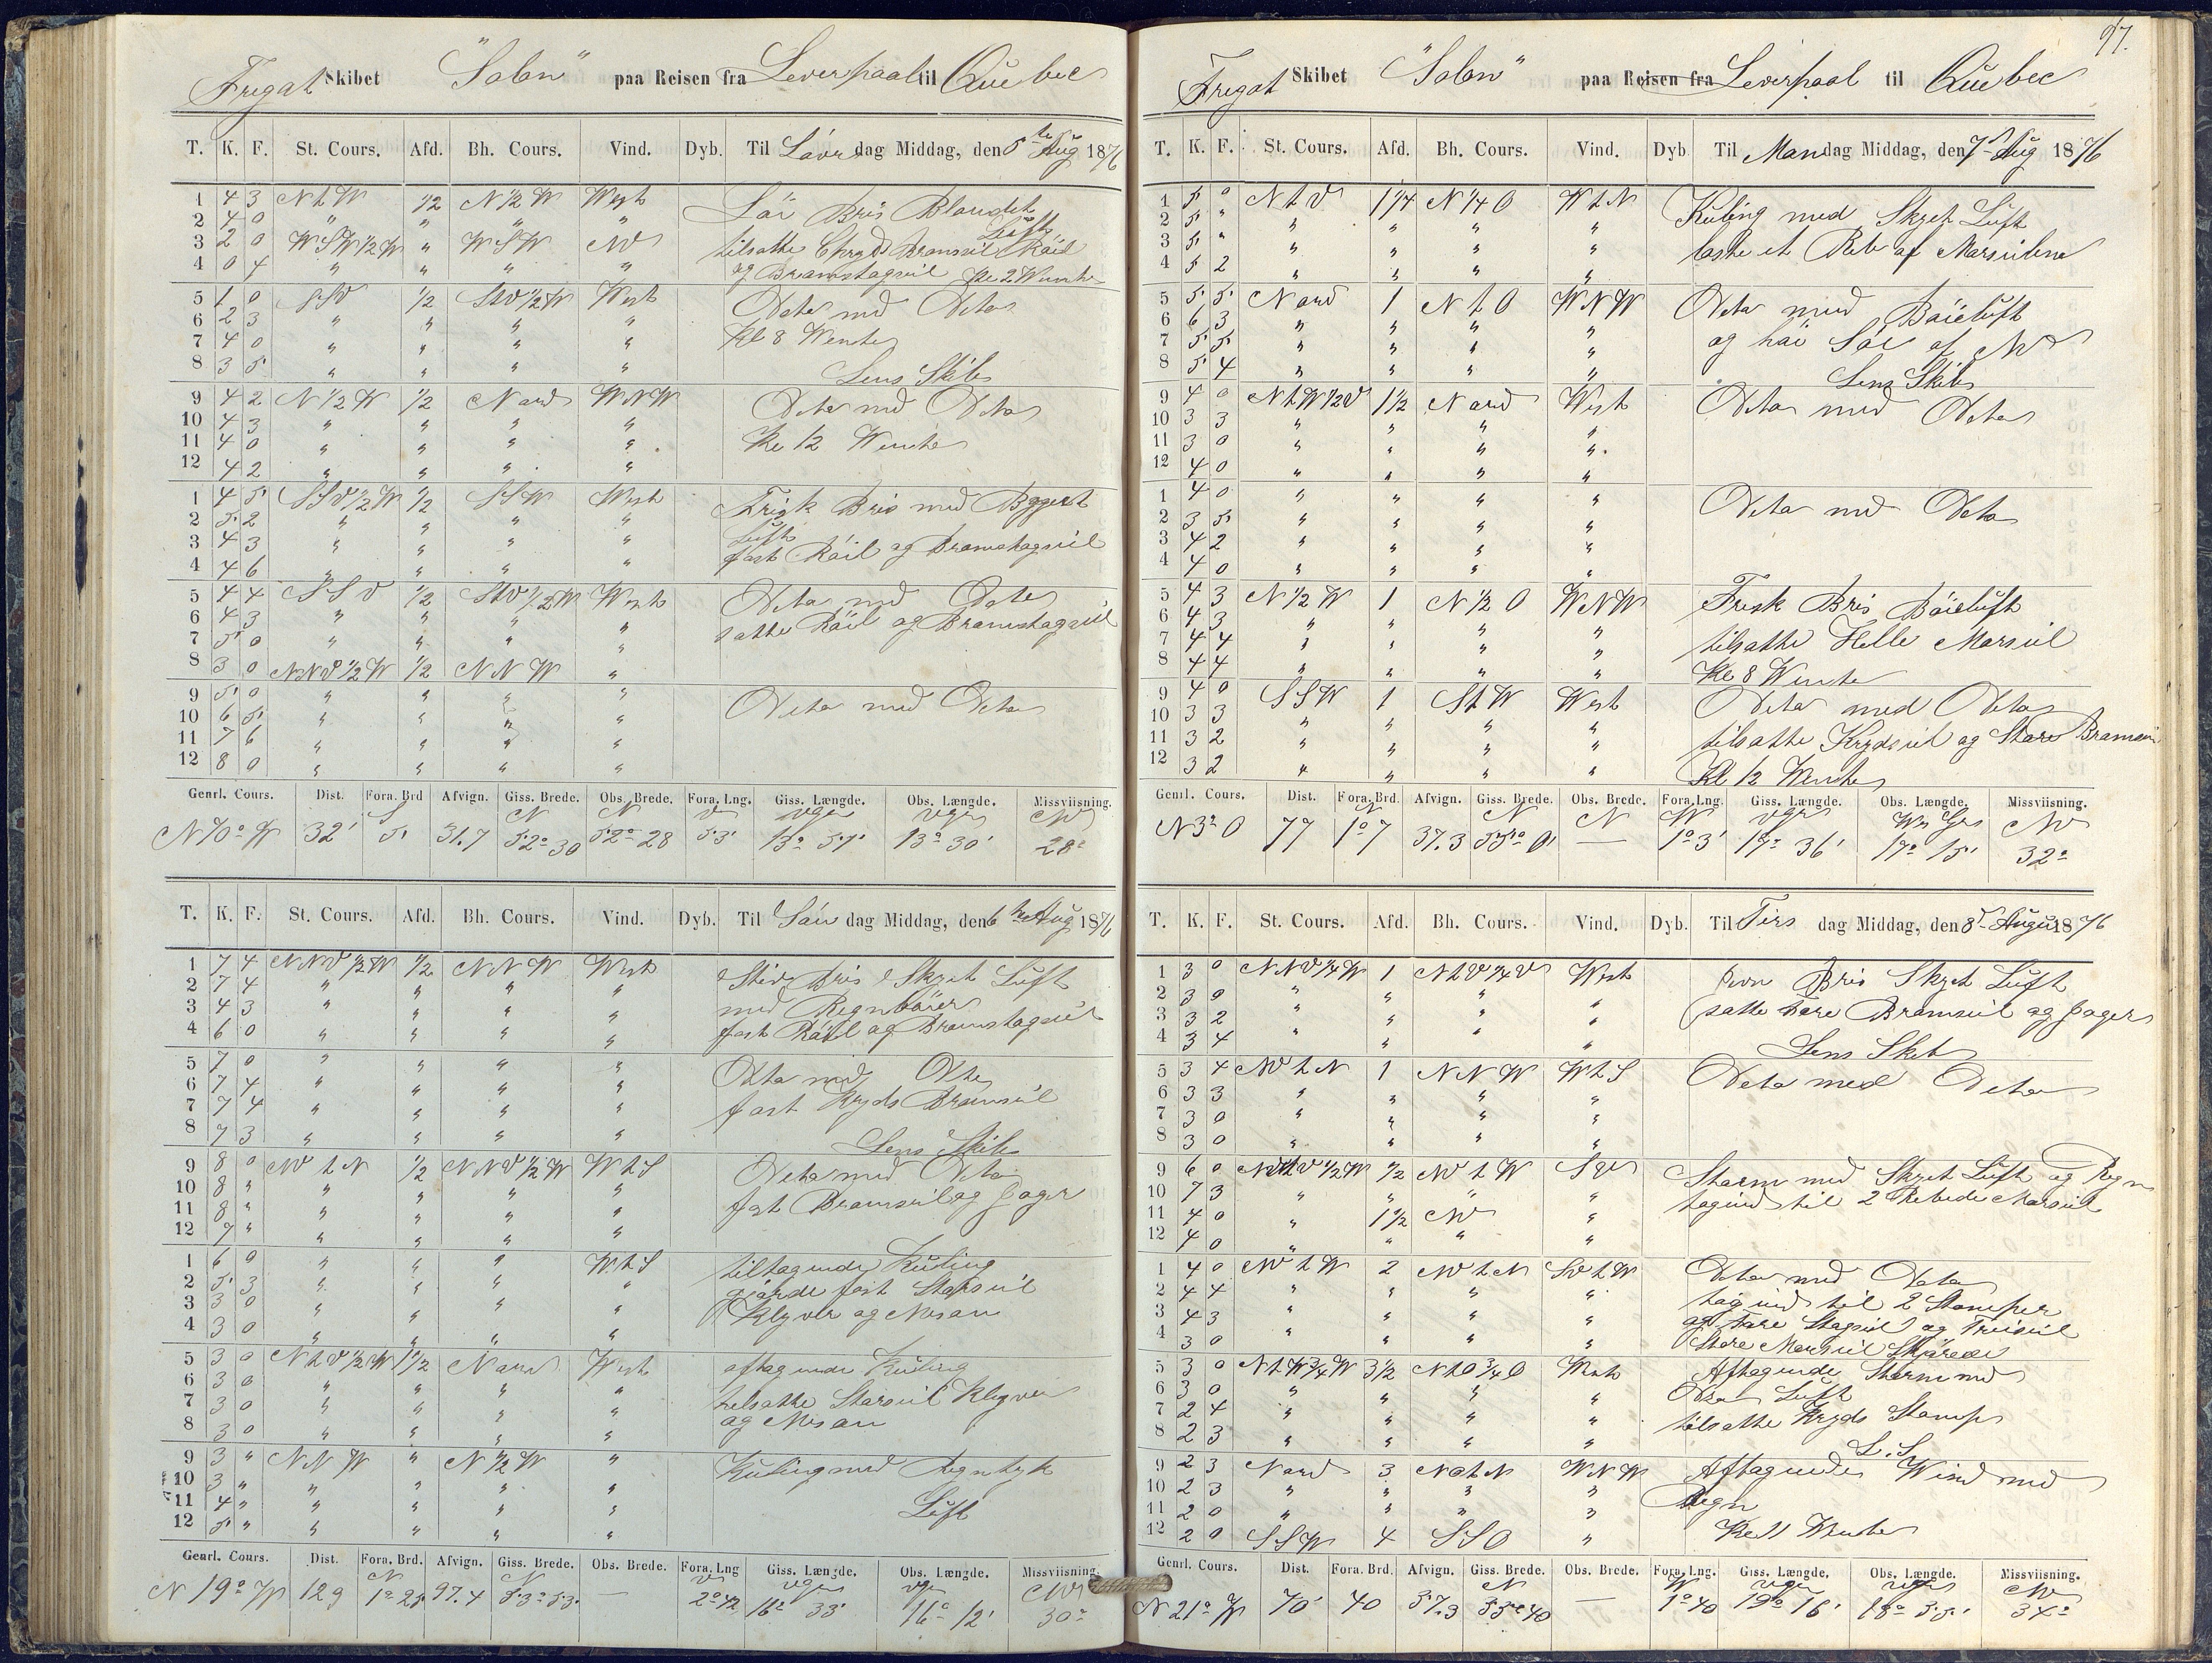 Fregat Skibet "Solon" paa Reisen fra Leverpaal til Quebec
T. K. F. St. Cours. Afd. Bh. Cours. Vind. Dyb. Til Löver dag Middag, den 5te Aug 1876
1 4 3 N t W 1/2 N 1/2 W West Lör Bris Blandet
2 4 0 " " " " Luft
3 2 0 W S W 1/2 W " W S W NW tilsatte Chryds Bramseil Röil
4 0 4 " " " " og Bramstagseil Kl 2 Wente
5 1 0 1/2 West Deto med Deto
6 2 3 " " " "
7 4 0 " " " " Kl 8 Wente
8 3 5 " " " " Lens Skib
9 4 2 N 1/2 W 1/2 Nord W N W Deto med Deto
10 4 3 " " " "
11 4 0 " " " " Kl 12 Wente
12 4 2 " " " "
1 4 5 SSV 1/2 W 1/2 S S W West Frisk Bris med Bygget
2 5 2 " " " " Luft
3 4 3 " " " " fast Röil og Bramstagseil
4 4 6 " " " "
5 4 4 S S V 1/2 StV 1/2 W West Deto med Deto
6 4 3 " " " " satte Röil og Bramstagseil
7 5 0 " " " "
8 3 0 NNV 1/2 W 1/2 N N W "
9 5 0 " " " " Deto med Deto
10 6 5 " " " "
11 7 6 " " " "
12 8 0 " " " "
Genrl. Cours. Dist. Fora. Brd Afvign. Giss. Brede. Obs. Brede. Fora. Lng. Giss. Længde. Obs. Længde. Missviisning.
S N N V VGr VGr NW
N 70° W 32' 5' 31.7 52° 30 52° 28 53' 13° 57' 13° 30' 28°
T. K. F. St. Cours. Afd. Bh. Cours. Vind. Dyb. Til Sön dag Middag, den 6te Aug 1876
1 7 4 NNV 1/2 W 1/2 N N W West Stiv Bris Skyet Luft
2 7 4 " " " " med Regnböier
3 4 3 " " " " fast Röil og Bramstagseil
4 6 0 " " " "
5 7 0 " " " " Deto med Deto
6 7 4 " " " " fast Kryds Bramseil
7 7 4 " " " "
8 7 3 " " " " Lens Skib
9 8 0 NV t N 1/2 NNV 1/2 W W t S Deto med Deto
10 8 " " " " " fast Bramseil og Jager
11 8 " " " " "
12 7 " " " " "
1 6 0 " " " W t S tiltagende Kuling
2 5 3 " " " " gjorde fast Storseil
3 3 0 " " " " Klyver og Mesan
4 3 0 " " " "
5 3 0 N t V 1/2 W 1 1/2 Nord West aftagende Kuling
6 3 0 " " " " tilsatte Storseil Klyver
7 3 0 " " " " og Mesan
8 3 0 " " " "
9 3 " N N W " N 1/2 W " Kuling med Regntyk
10 3 " " " " " Luft
11 4 " " " " "
12 5 " " " " "
Genrl. Cours. Dist. Fora. Brd. Afvign. Giss. Brede. Obs. Brede. Fora. Lng Giss. Længde. Obs. Længde. Missviisning.
N N V VGr VGr NW
N 19° W 129 1° 25' 97.4 53° 53' — 2° 42 16° 33' 16° 12' 30°
97.
Fregat Skibet "Solon" paa Reisen fra Leverpaal til Quebec
T. K. F. St. Cours. Afd. Bh. Cours. Vind. Dyb Til Mandag Middag, den 7de Aug 1876
1 5 0 N t V 1 1/4 N 1/4 O W t N Kuling med Skyet Luft
2 5 " " " " " laste et Reb af Marseilene
3 5 " " " " "
4 5 2 " " " "
5 5 5 Nord 1 N t O W N W Deto med Böieluft
6 6 3 " " " " og höi Söe af NV
7 5 5 " " " "
8 5 4 " " " " Lens Skib
9 4 0 N t W 1/2 V 1 1/2 Nord West Deto med Deto
10 3 3 " " " "
11 3 0 " " " "
12 4 0 " " " "
1 4 0 " " " " Deto med Deto
2 3 5 " " " "
3 4 2 " " " "
4 4 0 " " " "
5 4 3 N 1/2 W 1 N 1/2 O W N W Frisk Bris Böieluft
6 4 3 " " " " tilsatte Helle Marseil
7 4 4 " " " "
8 4 4 " " " " Kl 8 Wente
9 4 0 S S W 1 S t W West Deto med Deto
10 3 3 " " " " tilsatte Krydseil og Store Bramseil
11 3 2 " " " "
12 3 2 " " " " Kl 12 Wente
Genrl. Cours. Dist. Fora. Brd. Afvign. Giss. Brede. Obs. Brede. Fora. Lng. Giss. Længde. Obs. Længde. Missviisning.
N N N W VGr Wr Gr NW
N 3° O 77 1° 7 37.3 55° 0' — 1° 3' 17° 36' 17° 15' 32°
T. K. F. St. Cours. Afd. Bh. Cours. Vind. Dyb. Til Tirs dag Middag, den 8de August 1876
1 3 0 NNV 3/4 W 1 N t V 3/4 V West Jevn Bris Skyet Luft
2 3 0 " " " " satte Fore Bramseil og Jager
3 3 2 " " " "
4 3 4 " " " " Lens Skib
5 3 4 NV t N 1 N N W W t S Deto med Deto
6 3 3 " " " "
7 3 0 " " " "
8 3 0 " " " "
9 6 0 1/2 NV t W SV Storm med Skyet Luft og Regn
10 7 3 " " " " toginds til 2 Rebede Marseil
11 4 0 " 1 1/2 NW "
12 4 0 " " " "
1 4 0 NV t W 2 NV t N SV t W Deto med Deto
2 4 4 " " " " toginds til 2 Stomper
3 4 3 " " " " og Fore Stagseil og Treiseil
4 3 0 " " " " Store Merseil Skjöredes
5 3 0 N t W 3/4 W 3 1/2 N t O 3/4 O West Aftagende Storm med
6 3 0 " " " " Luft
7 2 4 " " " " tilsatte Kryds Stomp
8 2 3 " " " " L. S.
9 2 3 Nord 3 NO t N W N W Aftagende Wind med
10 2 3 " " " " Regn
11 2 0 " " " "
12 2 0 S S W 4 S S O " Kl 11 Wente
Genrl. Cours. Dist. Fora. Brd. Afvign. Giss. Brede. Obs. Brede. Fora. Lng. Giss. Længde. Obs. Længde. Missviisning.
N W VGr VGr NW
N 21° W 70' 40 57.3 55° 40 — 1° 40 19° 16' 18° 55' 34°